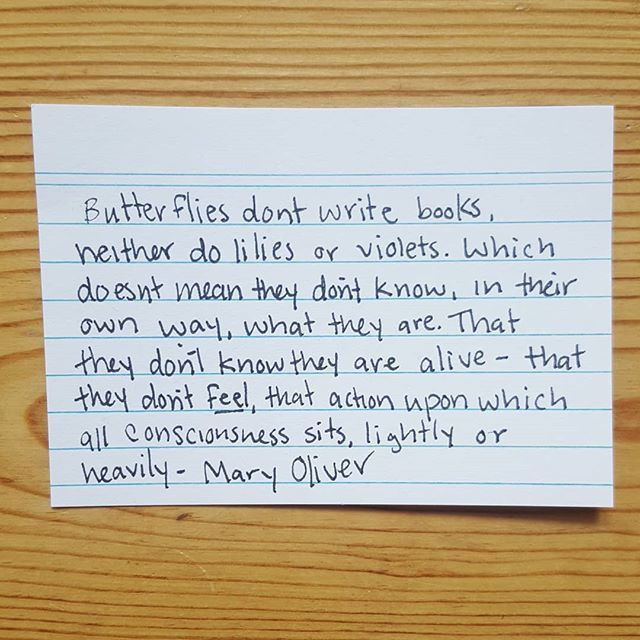 Butterflies dont write books,
neither do lilies or violets. Which
doesn't mean they don't know, in their
own way, what they are. That
they don't know they are alive - that
they don't feel, that action upon which
all consciousness sits, lightly or
heavily - Mary Oliver